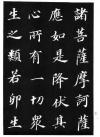 諸菩薩摩訶薩
應如是降伏其
心所有一切眾
生之類若卵生